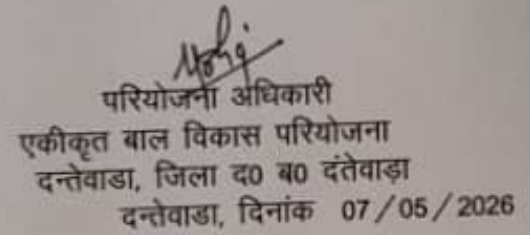 परियोजना अधिकारी
एकीकृत बाल विकास परियोजना
दन्तेवाडा, जिला द0 ब0 दंतेवाड़ा
दन्तेवाडा, दिनांक 07 / 05 / 2026